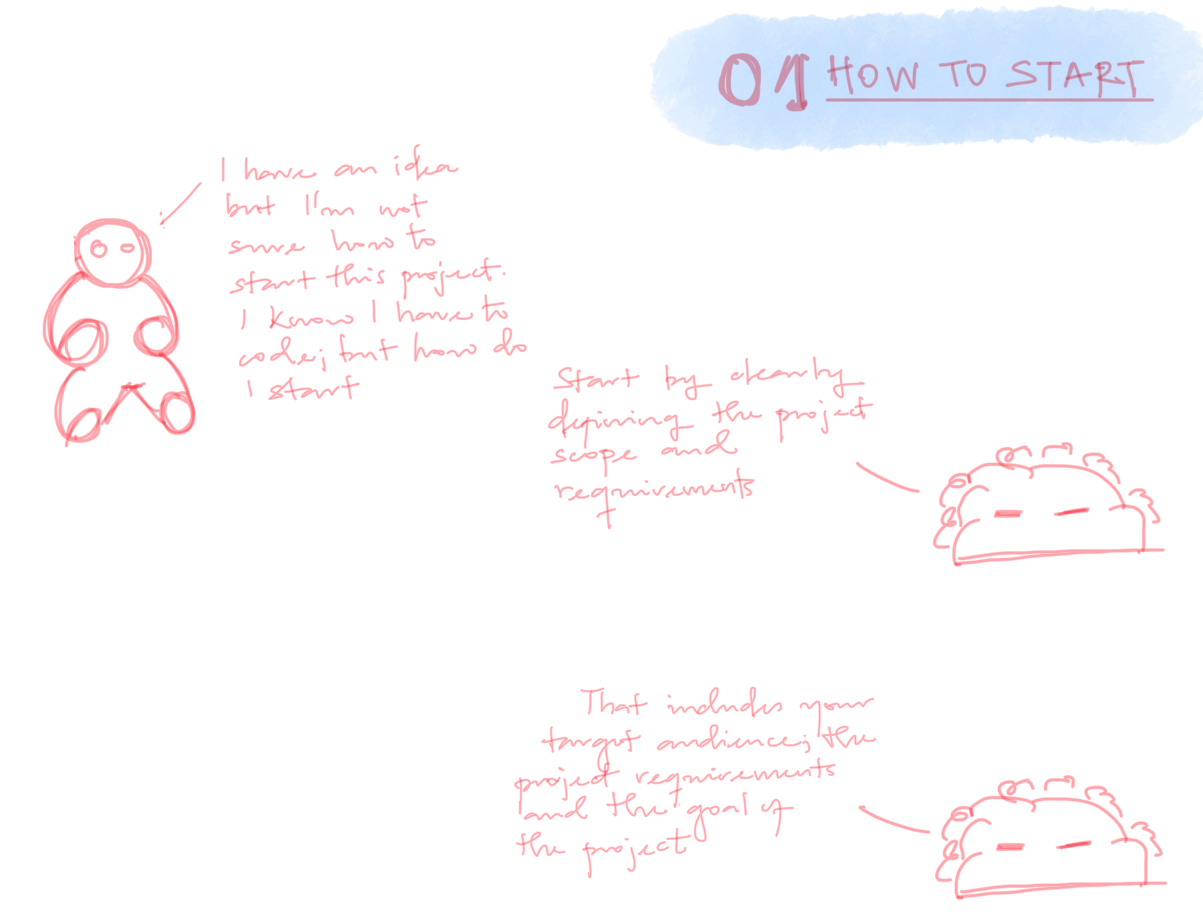 01 HOW TO START
I have an idea
but I'm not
sure how to
start this project.
I know I have to
code; but how do
I start
Start by clearly
defining the project
scope and
requirements
That includes your
target audience; the
project requirements
and the goal of
the project